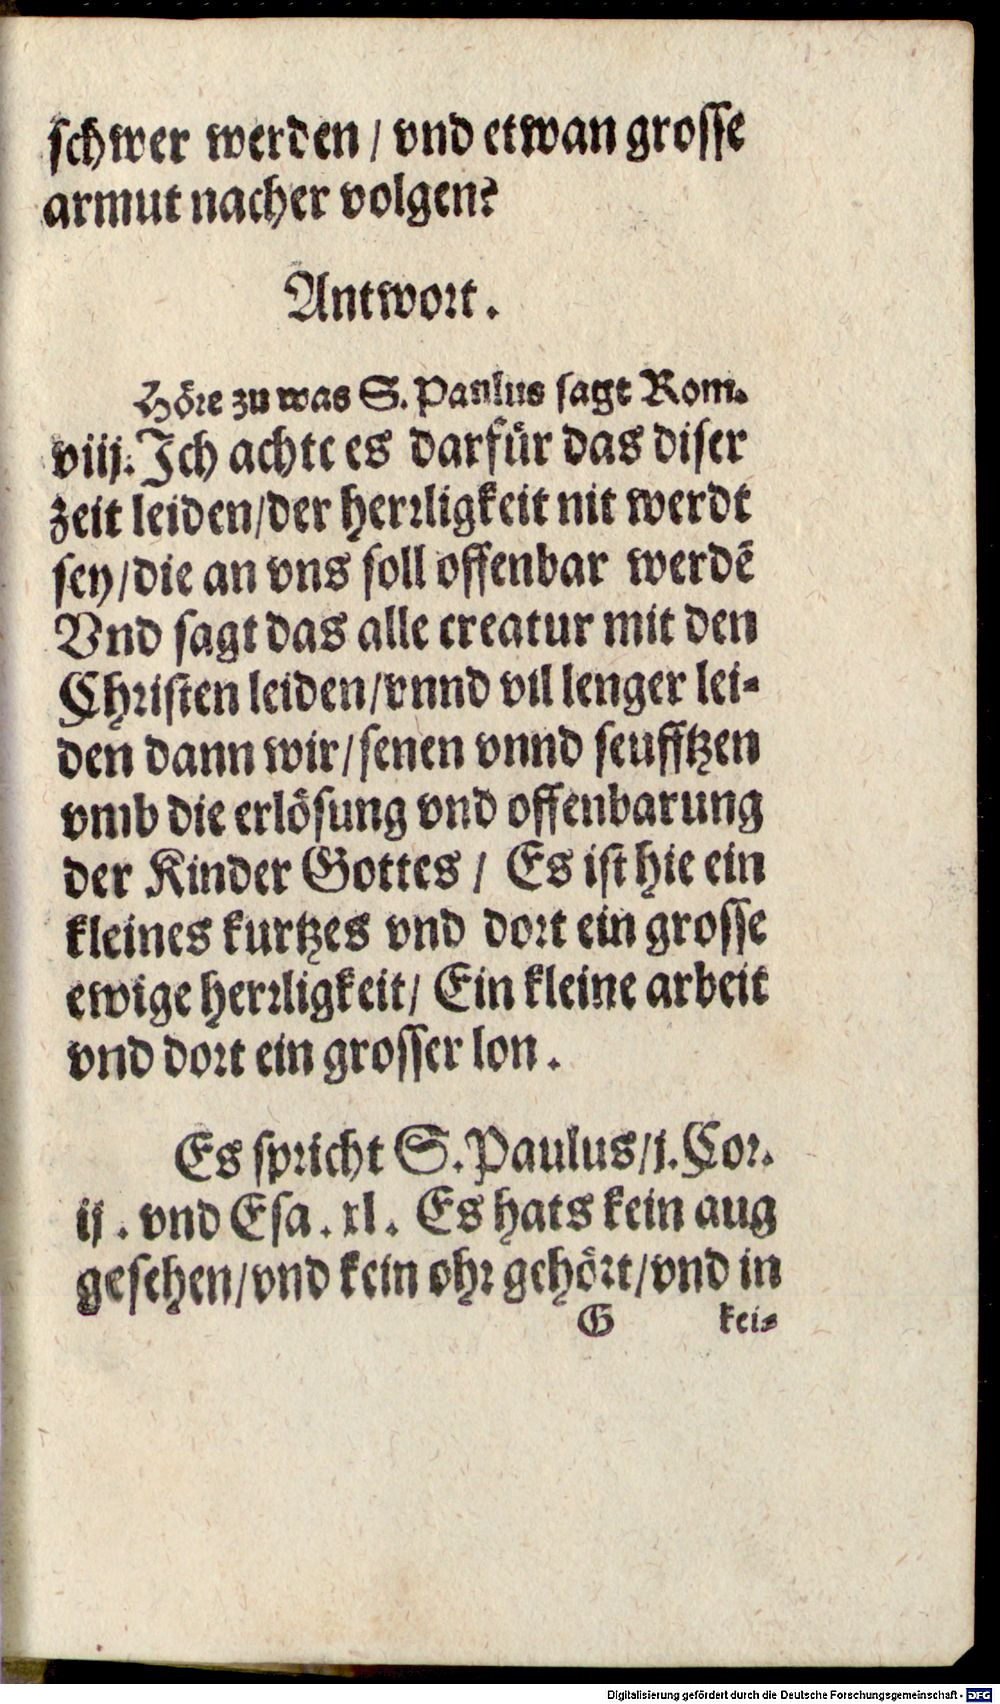 schwer werden / vnd etwan grosse
armut nacher volgen?
Antwort.
Höre zu was S. Paulus sagt Rom.
viij. Ich achte es darfür das diser
zeit leiden/der herrligkeit nit werdt
sey/die an vns soll offenbar werdẽ
Vnd sagt das alle creatur mit den
Christen leiden/vnnd vil lenger lei-
den dann wir/senen vnnd seufftzen
vmb die erlösung vnd offenbarung
der Kinder Gottes / Es ist hie ein
kleines kurtzes vnd dort ein grosse
ewige herrligkeit/ Ein kleine arbeit
vnd dort ein grosser lon.
Es spricht S. Paulus/j. Cor.
ij. vnd Esa. xl. Es hats kein aug
gesehen/vnd kein ohr gehört/vnd in
G kei-
Digitalisierung gefördert durch die Deutsche Forschungsgemeinschaft - DFG